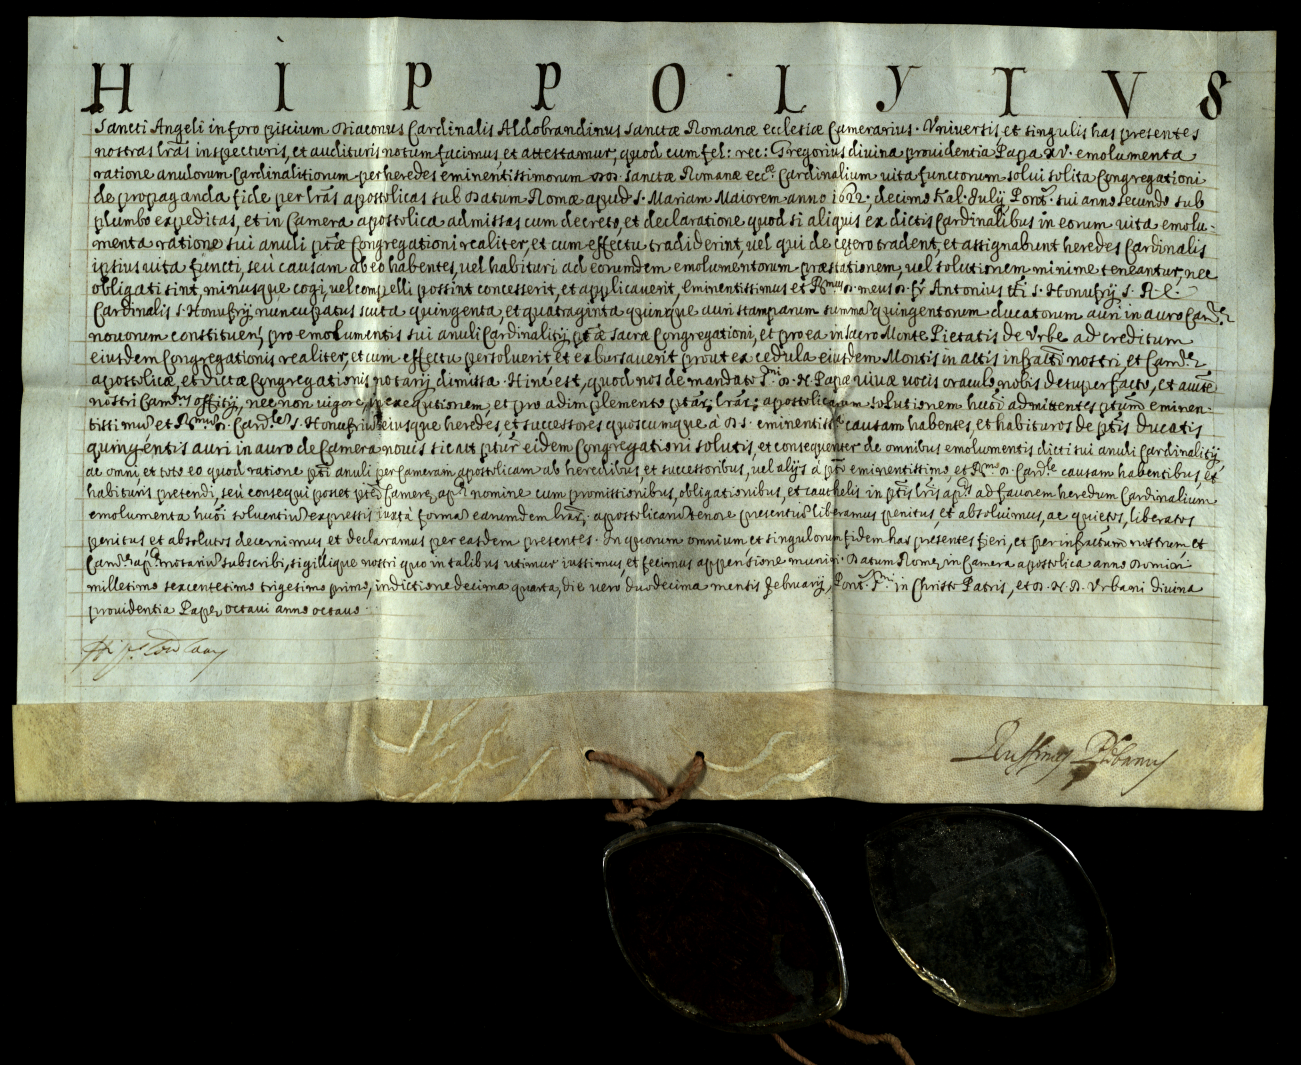 HIPPOLYTVS
Sancti Angeli in foro piscium Diaconus Cardinalis Aldobrandinus Sanctæ Romanæ ecclesiæ Camerarius. Vniuersis et singulis has presentes
nostras lr̃as inspecturis, et audituris notum facimus, et attestamur, quod cum fel: rec: Gregorius diuina prouidentia Papa XV. emolumenta
ratione anulorum Cardinalitiorum per heredes eminentissimorum Sanctæ Romanæ Cardinalium vita functorum solui solita Congregationi
de propaganda fide per lr̃as apostolicas sub Datum Romæ apud S. Mariam Maiorem anno 1622, decimo Kal. July Pont. sui anno secundo sub
plumbo expeditas, et in Camera apostolica admissas cum decreto, et declaratione quod si aliquis ex dictis Cardinalibus in eorum vita emolu-
menta ratione sui anuli Congregationi realiter, et cum effectu tradiderint, uel qui de cętero tradent, et assignabunt heredes Cardinalis
ipsius vita functi, seù causam ab eo habentes, uel habituri ad eorumdem emolumentorum præstationem, uel solutionem minime teneantur, nec
obligati sint, minusque cogi, uel compelli possint concesserit, et applicauerit, eminentissimus et R.mus D. meus D. Fr̃ Antonius S. Honufrij S. R. E.
Cardinalis S. Honufrij nuncupatus scuta quingenta, et quatraginta quinque auri stamparum summã quingentorum ducatorum auri in auro
nouorum constituen̄, pro emolumentis sui anuli Cardinalitij Sacræ Congregationi, et pro ea in Sacro Monte Pietatis de Vrbe ad creditum
eiusdem Congregationis realiter, et cum effectu persoluerit et exbursauerit prout ex cedula eiusdem Montis in actis nostri, et
apostolicæ, et dictæ Congregationis notarij dimissa. Hinc est, quod nos de mandato D. N. Papæ viuæ vocis oraculo nobis desuper facto, et
nostri officij, nec non vigore, in exequtionem, et pro adimplemento apostolicarum solutionem admittentes eminen-
tissimum et S. Honufrium eiusque heredes et successores quoscumque à D. S. eminentissima causam habentes, et habituros de ducatis
quingentis auri in auro de Camera nouis sicut eidem Congregationi solutis, et consequenter de omnibus emolumentis dicti sui anuli Cardinalitij,
ac omni, et toto eo quod ratione anuli per Cameram apostolicam ab heredibus, et successoribus, uel alijs à eminentissimo, et causam habentibus, et
habituris pretendi, seù consequi posset Camerę nomine cum promissionibus, obligationibus, et cauthelis in ad fauorem heredum Cardinalium
emolumenta soluentium expressis iuxta formam earumdem apostolicarum tenore presentium liberamus penitus, et absoluimus, ac quietos, liberatos
penitus et absolutos decernimus et declaramus per easdem presentes. In quorum omnium et singulorum fidem has presentes fieri, et per nostrum et
notarium subscribi, sigillique nostri quo in talibus utimur iussimus et fecimus appensione muniri. Datum Romę, in Camera apostolica anno Domini
millesimo sexcentesimo trigesimo primo, indictione decima quarta, die vero duodecima mensis Februarij, Pont. in Christo Patris, et D. N. D. Vrbani diuina
prouidentia Papę octaui anno octauo.